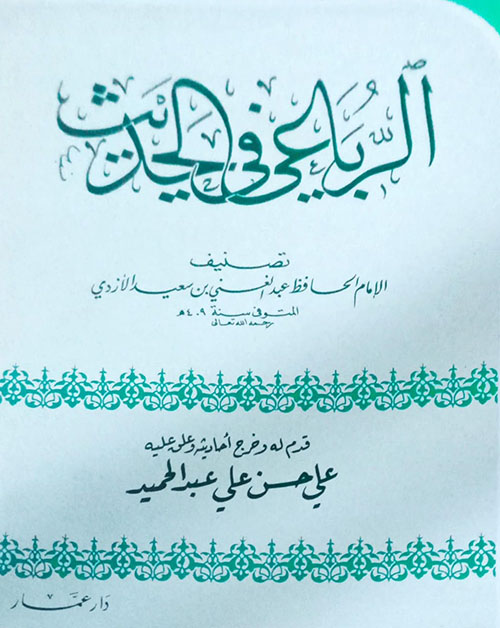 الرُّبَاعي في الحَديث
تصنيف
الإمام الحافظ عبد الغني بن سعيد الأزدي
المتوفى سنة ٤٠٩ هـ
رحمه الله تعالى
قدم له وخرج أحاديثه وعلق عليه
علي حسن علي عبد الحميد
دار عمار